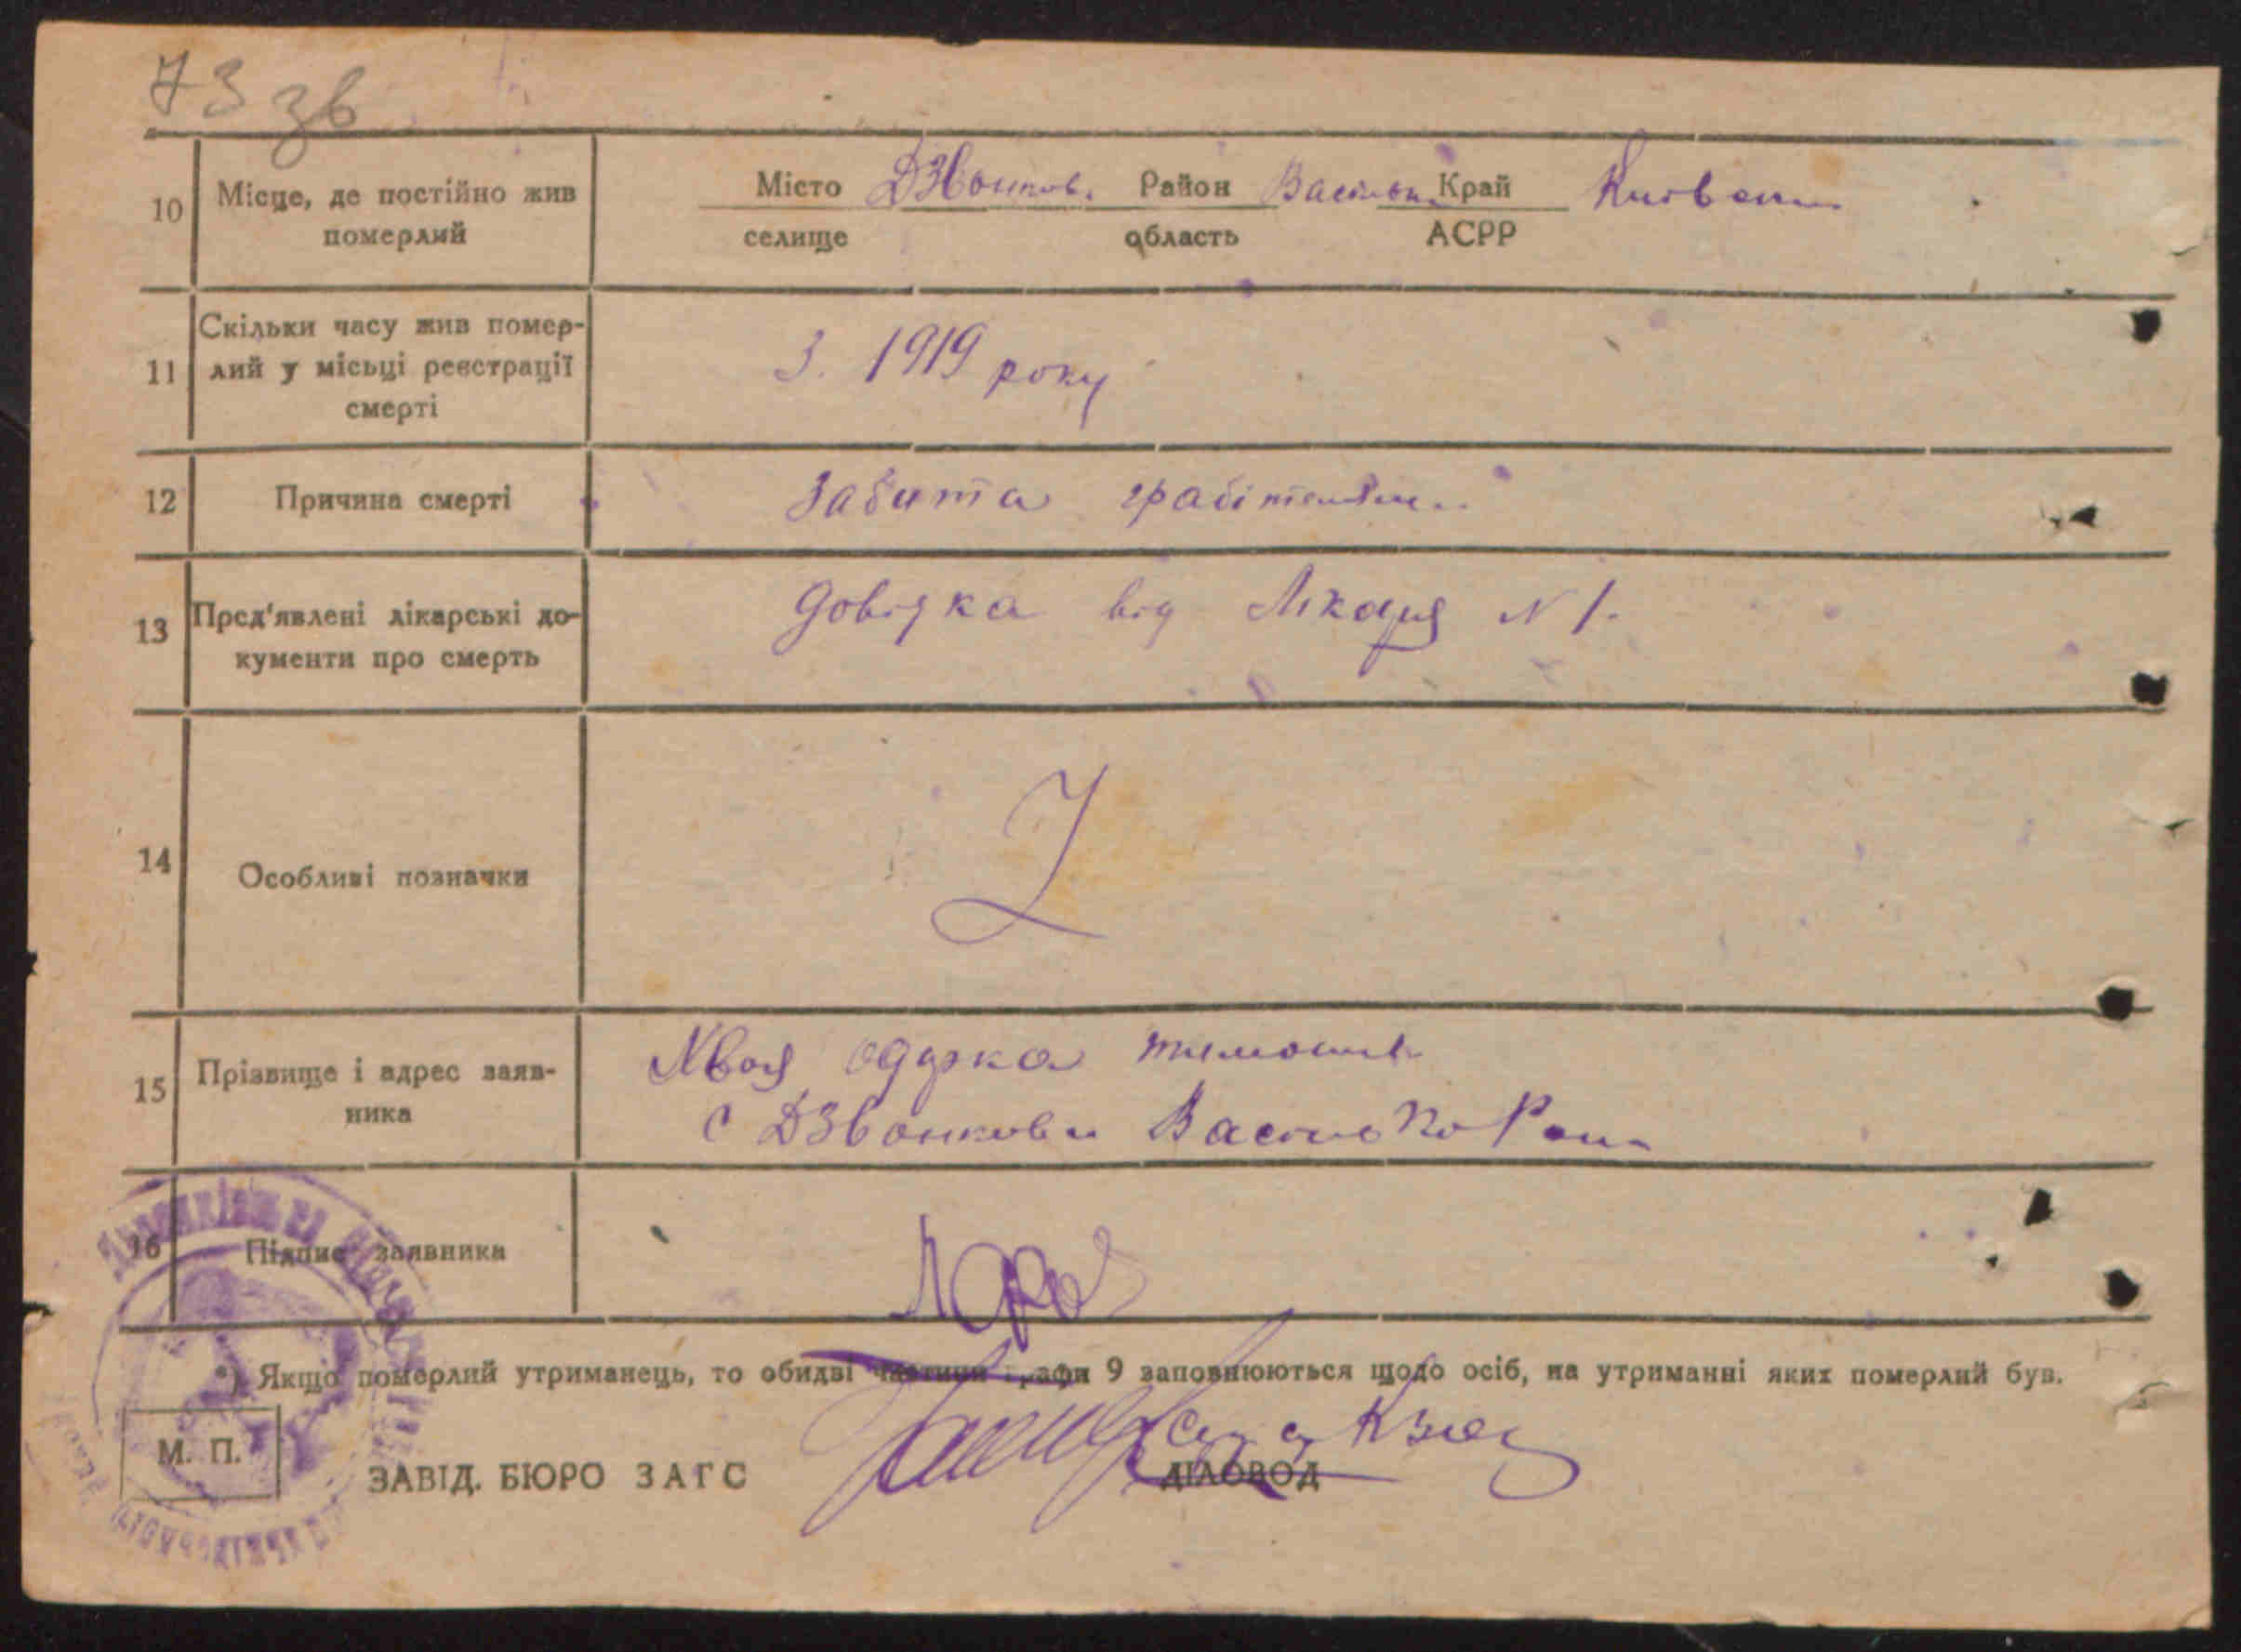 73 зв
10 Місце, де постійно жив померлий
Місто Дзвонков. Район Васильк. Край Київськ
селище область АСРР
11 Скільки часу жив помер-
лий у місьці реєстрації
смерті
З. 1919 року
12 Причина смерті Забита грабітелями
13 Пред'явлені лікарські до-
кументи про смерть
Довідка від Лікаря N 1.
14 Особливі позначки Z
15 Прізвище і адрес заяв-
ника
с Дзвонкова
16 Підпис заявника
*) Якщо померлий утриманець, то обидві частини графи 9 заповнюються щодо осіб, на утриманні яких померлий був.
М. П.
ЗАВІД. БЮРО ЗАГС ДІЛОВОД